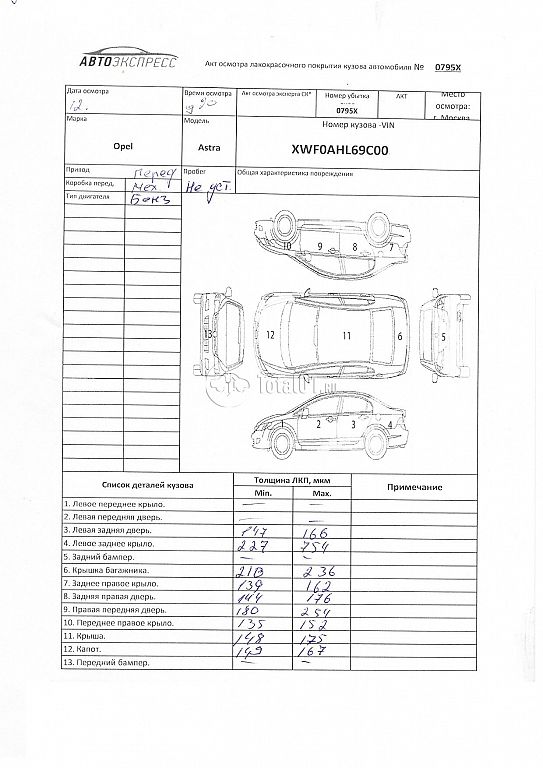 АВТОЭКСПРЕСС
Акт осмотра лакокрасочного покрытия кузова автомобиля № 0795X
Дата осмотра
12.
Время осмотра
Акт осмотра эксперта СК*
Номер убытка
0795X
АКТ
Место
осмотра:
г. Москва
Марка
Opel
Модель
Astra
Номер кузова -VIN
XWF0AHL69C00
Привод Перед
Пробег Не уст.
Общая характеристика повреждения
Коробка перед. Мех
Тип двигателя Бенз
10 9 8 7
13 12 11 6 5
Total01.ru
1 2 3 4
Список деталей кузова
Толщина ЛКП, мкм
Min. Max.
Примечание
1. Левое переднее крыло. — —
2. Левая передняя дверь. — —
3. Левая задняя дверь. 147 166
4. Левое заднее крыло. 227 754
5. Задний бампер. — —
6. Крышка багажника. 213 236
7. Заднее правое крыло. 139 162
8. Задняя правая дверь. 144 176
9. Правая передняя дверь. 180 254
10. Переднее правое крыло. 135 152
11. Крыша. 148 175
12. Капот. 149 167
13. Передний бампер. — —